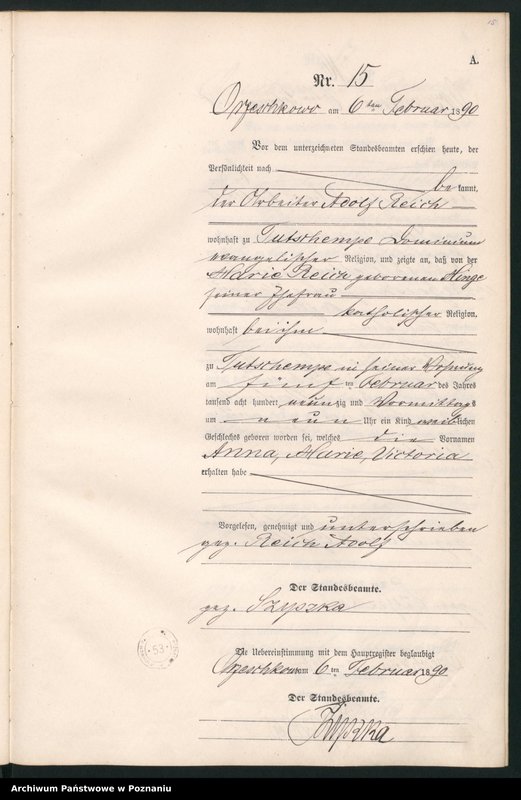 15
A.
Nr. 15
Orzeshkowo am 6ten Februar 1890
Vor dem unterzeichneten Standesbeamten erschien heute, der
Persönlichkeit nach
be kannt,
der Arbeiter Adolf Reich
wohnhaft zu Tutschempe Dominium
evangelischer Religion, und zeigte an, daß von der
Marie Reich geborenen Hinze
seiner Ehefrau
katholischer Religion,
wohnhaft bei ihm
zu Tutschempe in seiner Wohnung
am fünften Februar des Jahres
tausend acht hundert neunzig und Vormittags
um neun Uhr ein Kind weiblichen
Geschlechts geboren worden sei, welches die Vornamen
Anna, Marie, Victoria
erhalten habe
Vorgelesen, genehmigt und unterschrieben
gez. Reich Adolf
Der Standesbeamte.
gez. Szyszka
Die Uebereinstimmung mit dem Hauptregister beglaubigt
Orzeshkowo am 6ten Februar 1890
Der Standesbeamte.
Szyszka
53
Archiwum Państwowe w Poznaniu